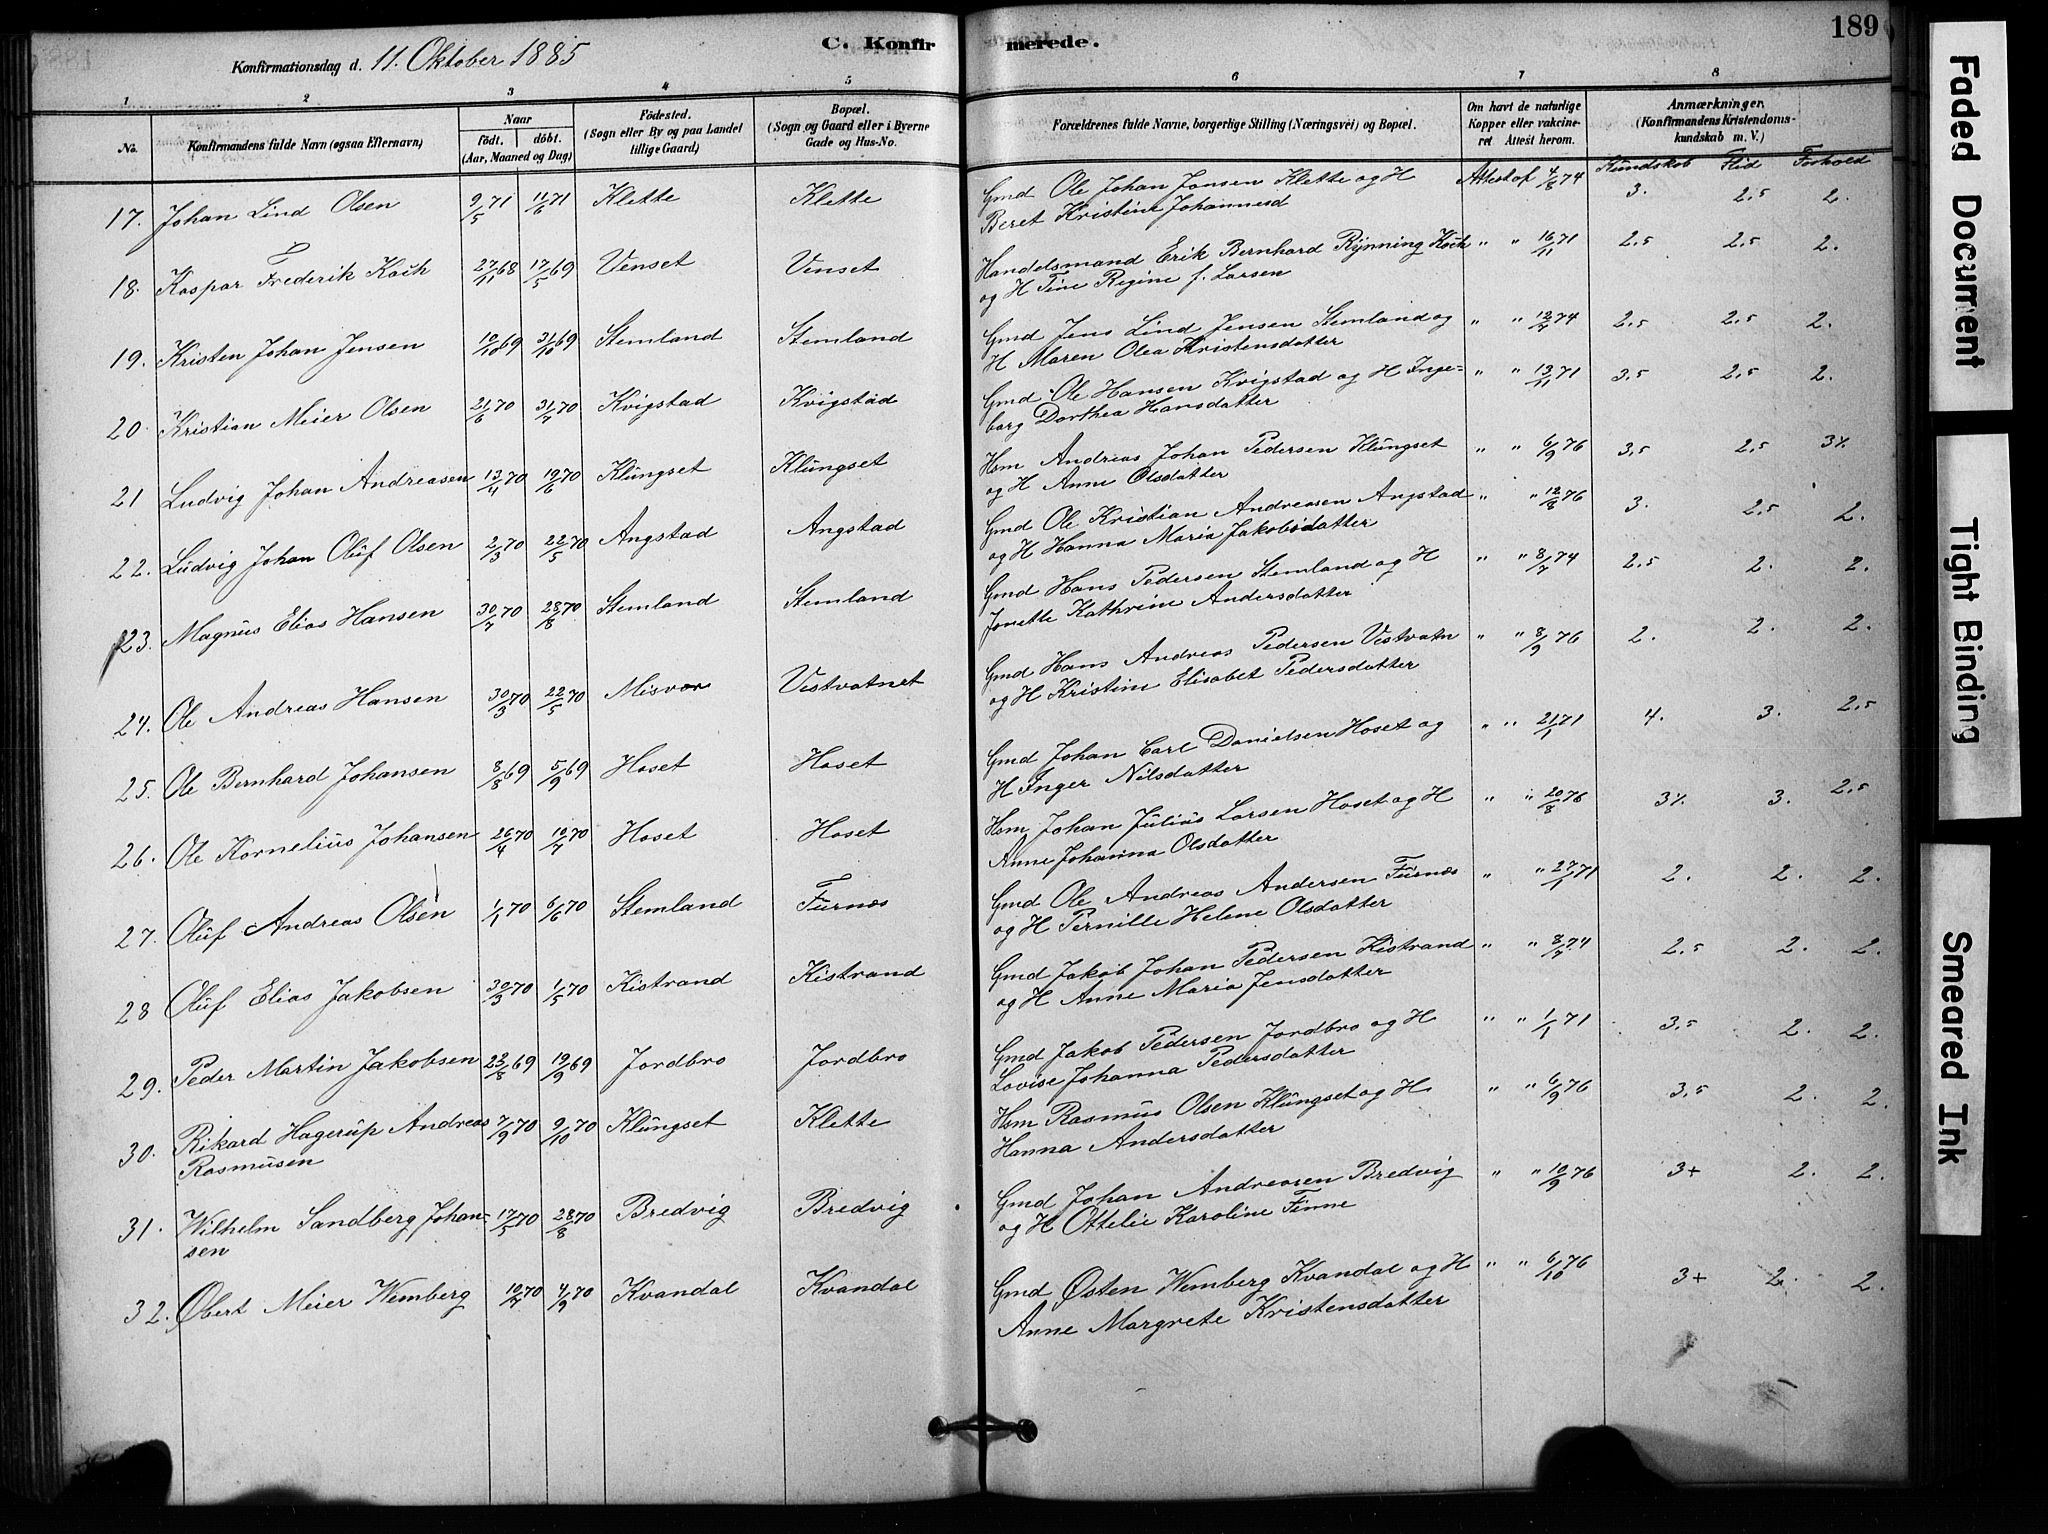 189
C. Konfirmerede.
Konfirmationsdag d. 11. Oktober 1885
1 2 3 4 5 6 7 8
No.
Konfirmandens fulde Navn (ogsaa Efternavn)
Naar
født. døbt.
(Aar, Maaned og Dag)
Fødested.
(Sogn eller By og paa Landet
tillige Gaard)
Bopæl.
(Sogn og Gaard eller i Byerne
Gade og Hus-No.
Forældrenes fulde Navne, borgerlige Stilling (Næringsvei) og Bopæl.
Om havt de naturlige
Kopper eller vakcine-
ret Attest herom.
Anmærkninger.
(Konfirmandens Kristendoms-
kundskab m. V.)
Kundskab Flid Forhold
17. Johan Lind Olsen 9/5 71 11/6 71 Klette Klette Gmd Ole Johan Jonsen Klette og H Attest af 4/8 74 3. 2,5 2.
Beret Kristine Johannesd
18. Kaspar Frederik Koch 27/11 68 17/5 69 Venset Venset Handelsmand Erik Bernhard Rynning Koch " " 16/11 71 2,5 2,5 2.
og H Tine Regine f. Larsen
19. Kristen Johan Jensen 10/10 69 31/10 69 Stemland Stemland Gmd Jens Lind Jensen Stemland og " " 12/7 74 2,5 2,5 2.
H Maren Olea Kristensdatter
20. Kristian Meier Olsen 21/6 70 31/7 70 Kvigstad Kvigstad Gmd Ole Hansen Kvigstad og H Inge- " " 13/11 71 3,5 2,5 2.
borg Dorthea Hansdatter
21 Ludvig Johan Andreasen 13/4 70 19/6 70 Klungset Klungset Hsm Andreas Johan Pedersen Klungset " " 6/9 76 3,5 2,5 3%
og H Anne Olsdatter
22. Ludvig Johan Oluf Olsen 2/3 70 22/5 70 Angstad Angstad Gmd Ole Kristian Andreasen Angstad " " 12/8 76 3. 2,5 2.
og H Hanna Maria Jakobsdatter
23. Magnus Elias Hansen 30/7 70 28/8 70 Stemland Stemland Gmd Hans Pedersen Stemland og H " " 8/7 74 2,5 2. 2.
Jonette Kathrine Andersdatter
24. Ole Andreas Hansen 30/3 70 22/5 70 Misvær Vestvatnet Gmd Hans Andreas Pedersen Vestvatn " " 8/9 76 2. 2. 2.
og H Kristine Elisabet Pedersdatter
25. Ole Bernhard Johansen 8/8 69 5/9 69 Hoset Hoset Gmd Johan Carl Danielsen Hoset og " " 21/1 71 4. 3. 2,5
H Inger Nilsdatter
26. Ole Kornelius Johansen 26/4 70 10/7 70 Hoset Hoset Hsm Johan Julius Larsen Hoset og H " " 20/8 76 3% 3. 2,5
Anne Johanna Olsdatter
27. Oluf Andreas Olsen 1/1 70 6/6 70 Stemland Furnæs Gmd Ole Andreas Andersen Furnæs " " 27/1 71 2. 2. 2.
og H Pernille Helene Olsdatter
28 Oluf Elias Jakobsen 30/3 70 1/5 70 Kistrand Kistrand Gmd Jakob Johan Pedersen Kistrand " " 8/7 74 2,5 2. 2.
og H Anne Maria Jensdatter
29. Peder Martin Jakobsen 23/8 69 19/9 69 Jordbro Jordbro Gmd Jakob Pedersen Jordbro og H " " 1/1 71 3,5 2. 2.
Lovise Johanna Pedersdatter
30. Rikard Hagerup Andreas 7/9 70 9/10 70 Klungset Klette Hsm Rasmus Olsen Klungset og H " " 6/9 76 3,5 2. 2.
Rasmusen Hanna Andersdatter
31. Wilhelm Sandberg Johan- 17/5 70 28/8 70 Bredvig Bredvig Gmd Johan Andreasen Bredvig " " 10/9 76 3+ 2. 2.
sen og H Ottelie Karoline Finne
32. Obert Meier Wemberg 10/7 70 4/9 70 Kvandal Kvandal Gmd Østen Wemberg Kvandal og H " " 6/10 76 3+ 2. 2.
Anne Margrete Kristensdatter
Faded Document
Tight Binding
Smeared Ink